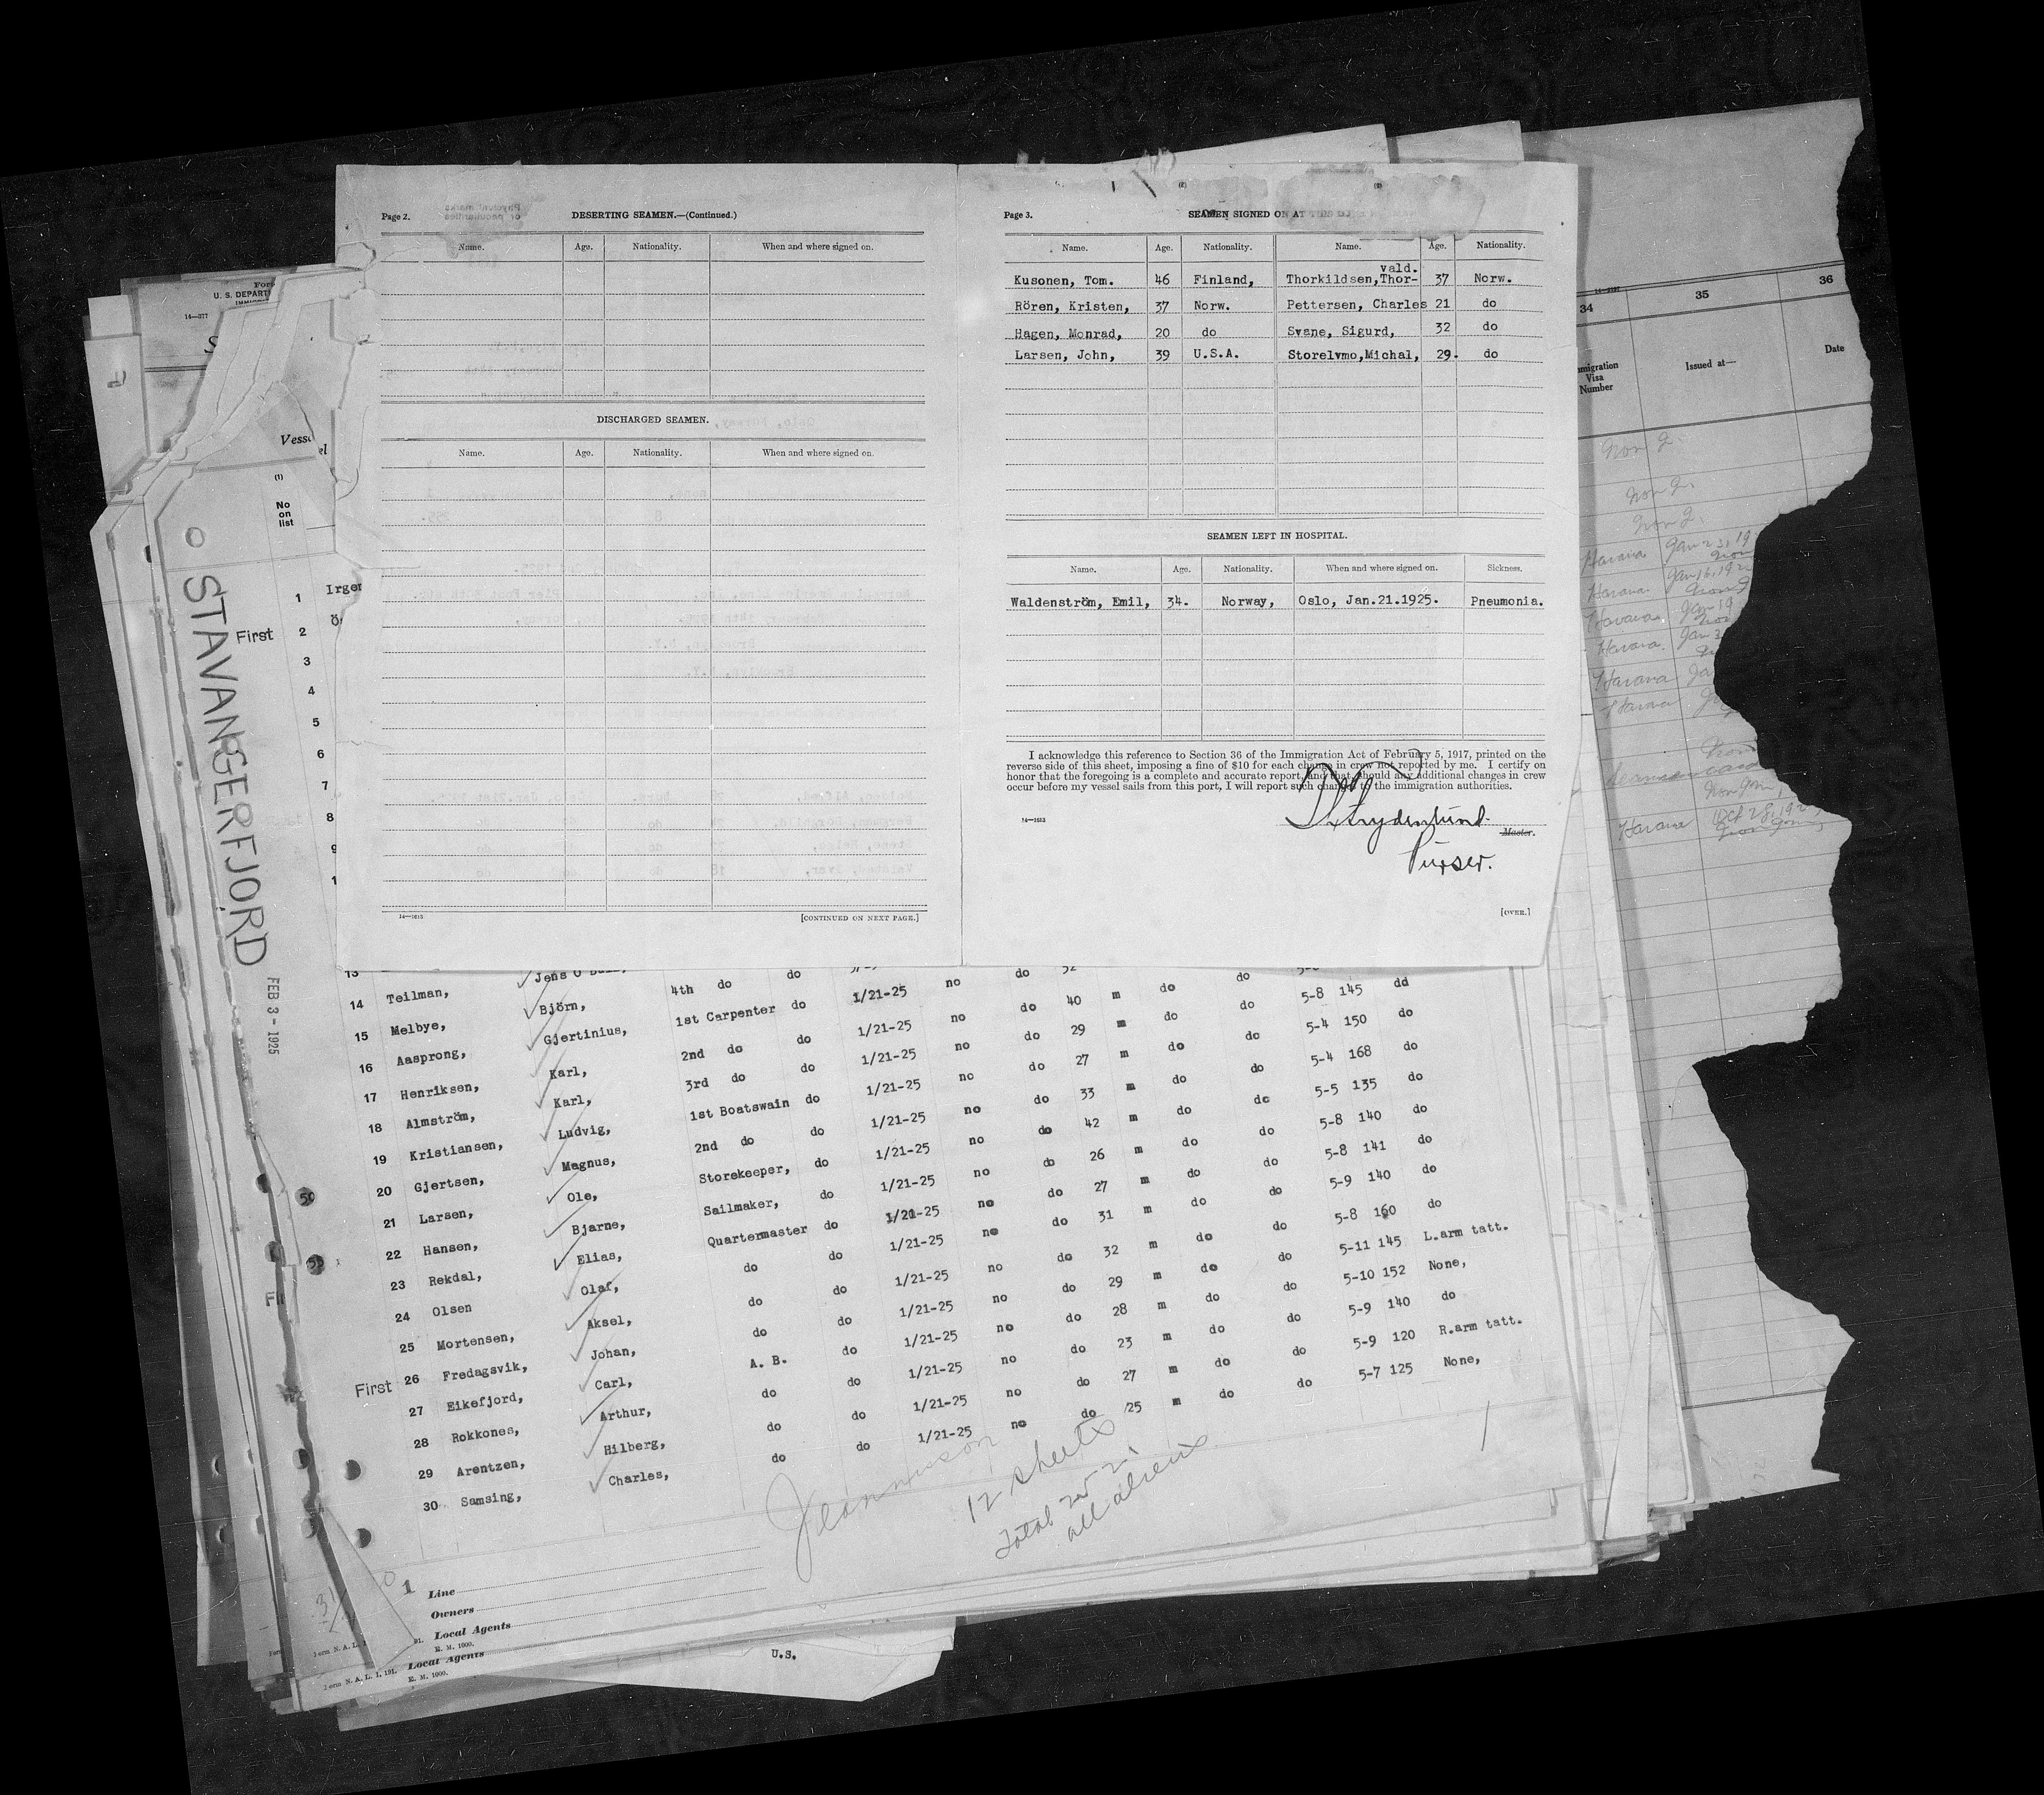 Page 2.
DESERTING SEAMEN.—(Continued.)
Name. Age. Nationality. When and where signed on.
DISCHARGED SEAMEN.
Name. Age. Nationality. When and where signed on.
14—1613
[CONTINUED ON NEXT PAGE.]
Page 3.
SEAMEN SIGNED ON AT THIS
Name. Age. Nationality. Name. Age. Nationality.
vald.
Kusonen, Tom. 46 Finland, Thorkildsen,Thor- 37 Norw.
Rören, Kristen, 37 Norw. Pettersen, Charles 21 do
Hagen, Monrad, 20 do Svane, Sigurd, 32 do
Larsen, John, 39 U.S.A. Storelvmo,Michal, 29. do
SEAMEN LEFT IN HOSPITAL.
Name. Age. Nationality. When and where signed on. Sickness.
Waldenström, Emil, 34. Norway, Oslo, Jan.21.1925. Pneumonia.
I acknowledge this reference to Section 36 of the Immigration Act of February 5, 1917, printed on the
reverse side of this sheet, imposing a fine of $10 for each change in crew not reported by me. I certify on
honor that the foregoing is a complete and accurate report, and that should any additional changes in crew
occur before my vessel sails from this port, I will report such changes to the immigration authorities.
14—1613
Master.
Purser.
[OVER.]
U. S. DEPART
14—377
Vess
(1)
No
on
list
STAVANGERFJORD
FEB 3 - 1925
1 Irgen
First 2
3
4
5
6
7
8
9
1
13
14 Teilman, Björn, 4th do do 1/21-25 no do 40 m do do 5-8 145 do
15 Melbye, Gjertinius, 1st Carpenter do 1/21-25 no do 29 m do do 5-4 150 do
16 Aasprong, Karl, 2nd do do 1/21-25 no do 27 m do do 5-4 168 do
17 Henriksen, Karl, 3rd do do 1/21-25 no do 33 m do do 5-5 135 do
18 Almström, Ludvig, 1st Boatswain do 1/21-25 no do 42 m do do 5-8 140 do
19 Kristiansen, Magnus, 2nd do do 1/21-25 no do 26 m do do 5-8 141 do
20 Gjertsen, Ole, Storekeeper, do 1/21-25 no do 27 m do do 5-9 140 do
21 Larsen, Bjarne, Sailmaker, do 1/21-25 no do 31 m do do 5-8 160 do
22 Hansen, Elias, Quartermaster do 1/21-25 no do 32 m do do 5-11 145 L.arm tatt.
23 Rekdal, Olaf, do do 1/21-25 no do 29 m do do 5-10 152 None,
24 Olsen Aksel, do do 1/21-25 no do 28 m do do 5-9 140 do
25 Mortensen, Johan, do do 1/21-25 no do 23 m do do 5-9 120 R.arm tatt.
First 26 Fredagsvik, Carl, A. B. do 1/21-25 no do 27 m do do 5-7 125 None,
27 Eikefjord, Arthur, do do 1/21-25 no do 25 m do do
28 Rokkones, Hilberg, do do 1/21-25 no
29 Arentzen, Charles, do
30 Samsing,
12 sheets
Total
all aliens
1 Line
Owners
Local Agents
E. M. 1000.
Local Agents
Form N. A. L. 1, 191. E. M. 1000.
U.S.
34 35 36
Immigration
Visa
Number
Issued at—
Date
Havana
Havana
Havana
Havana
Havana
Havana
Havana Oct 28, 192